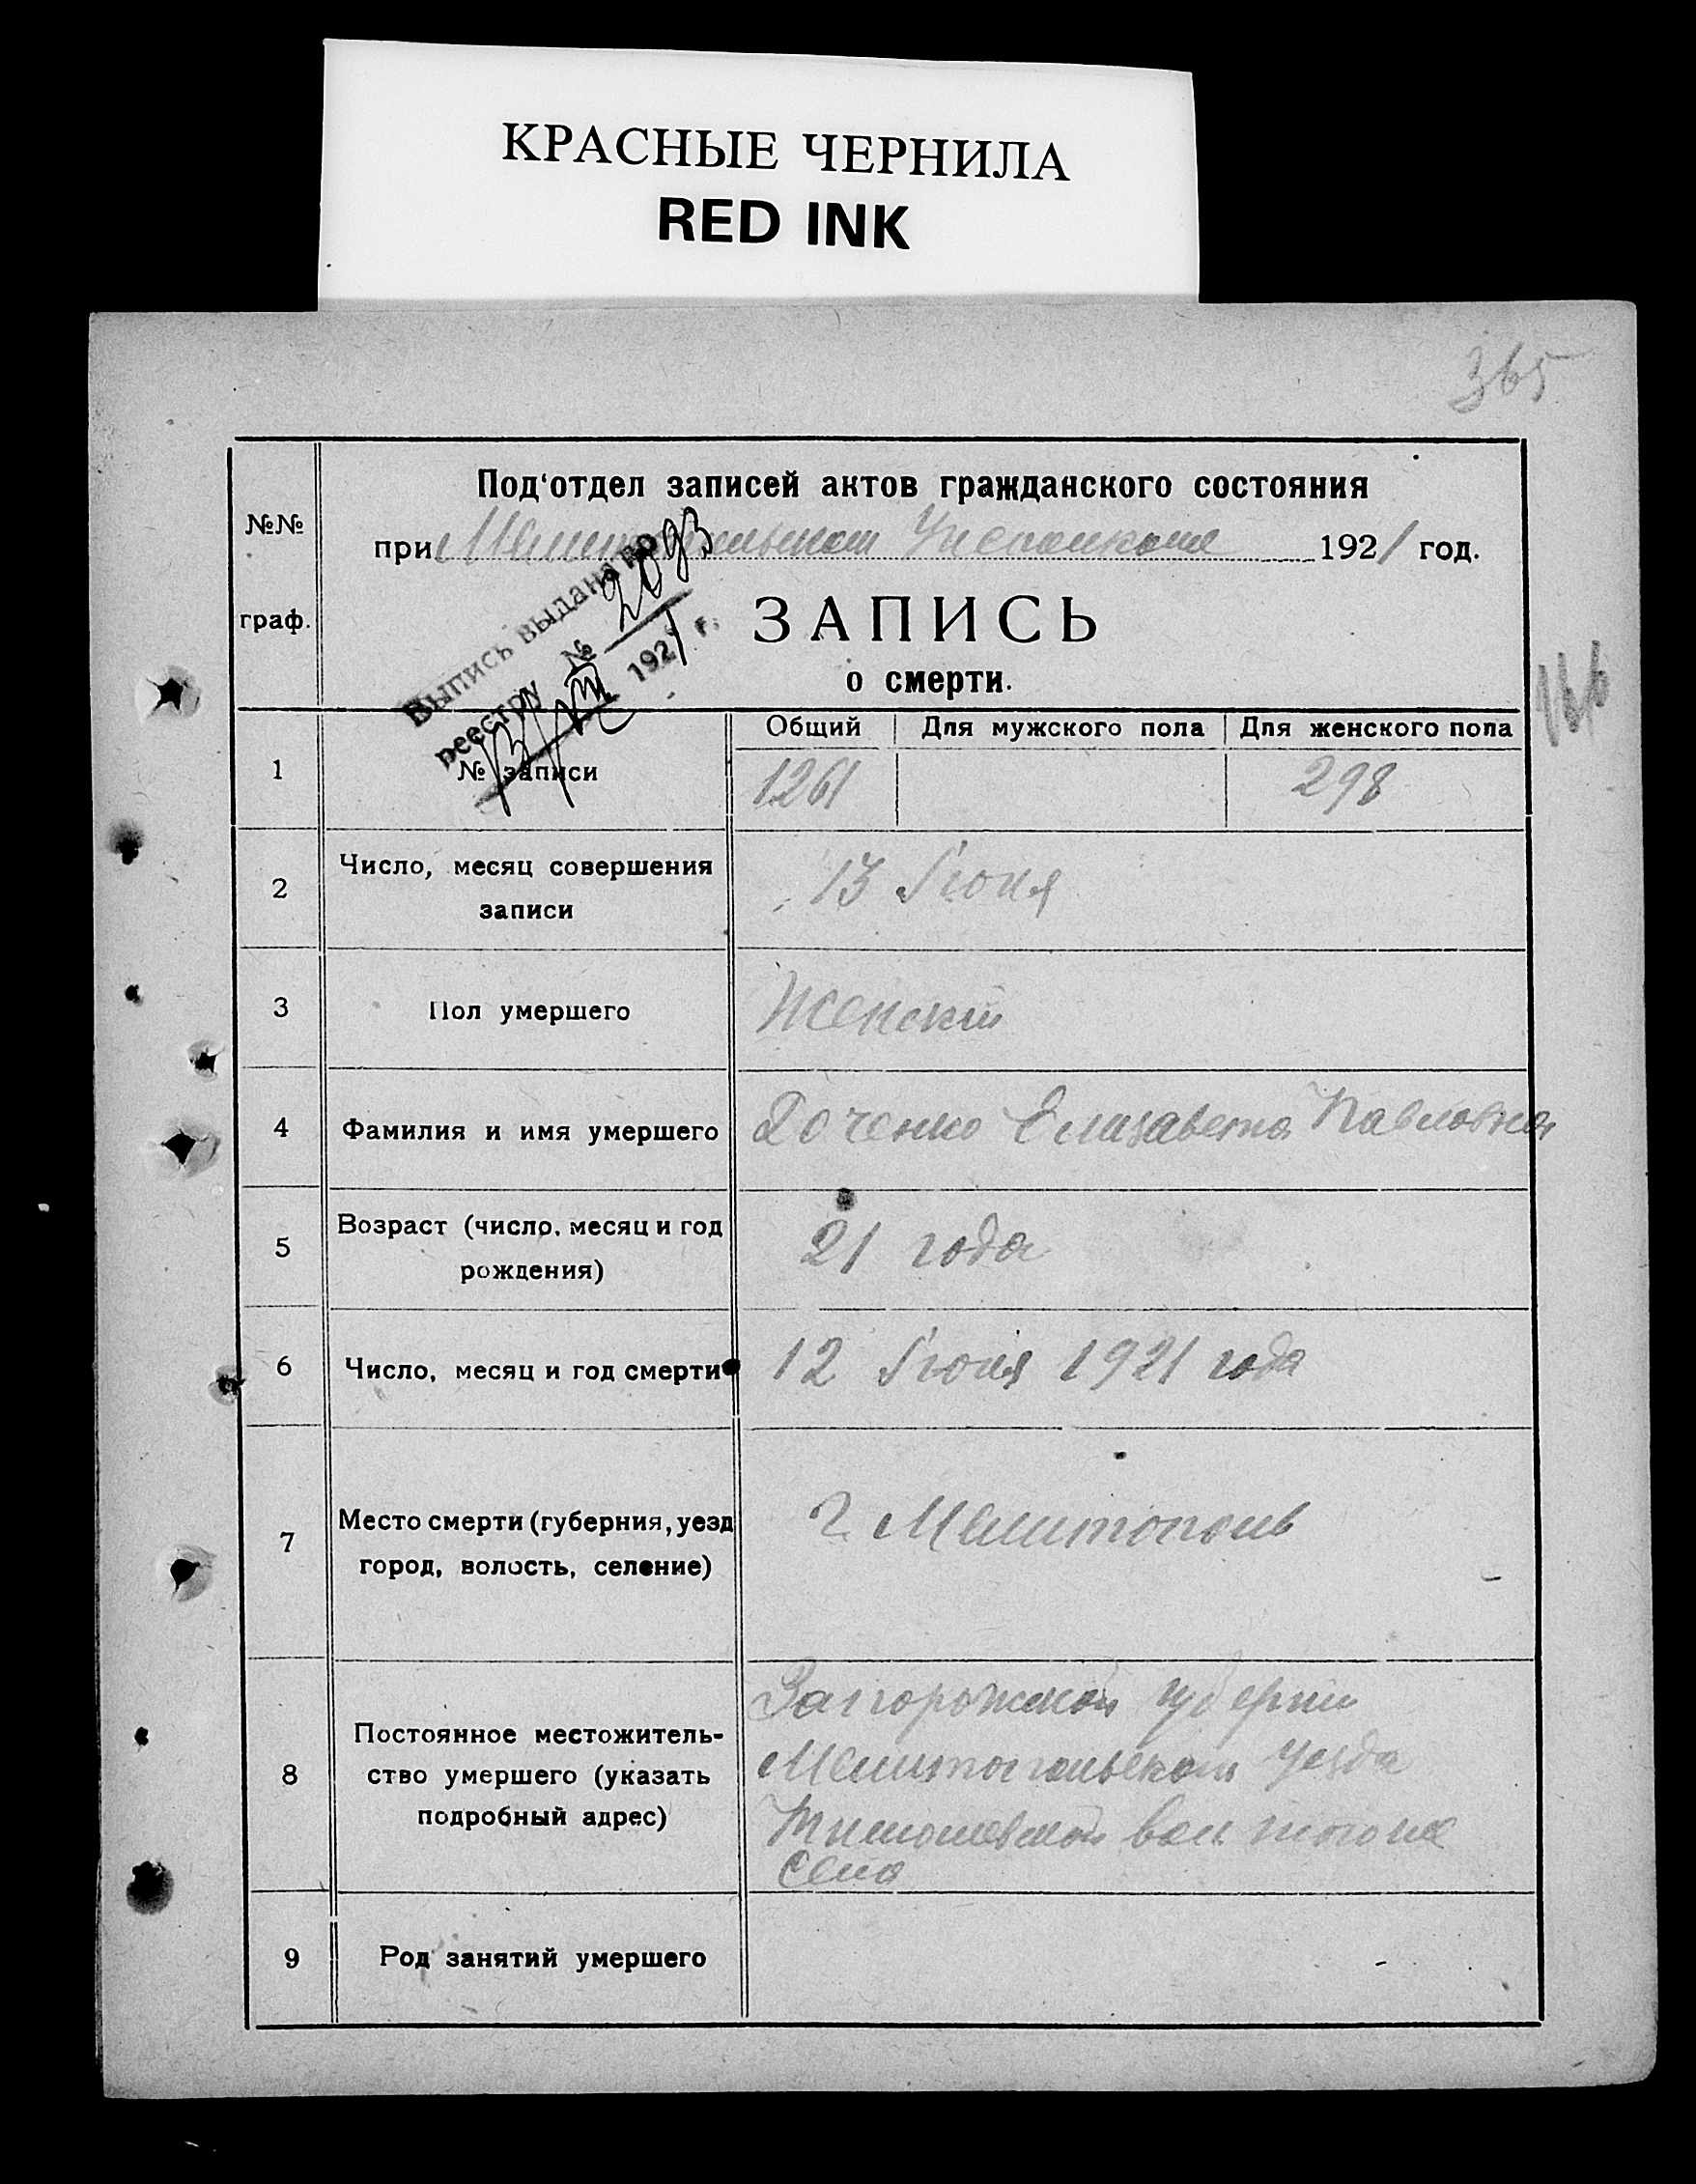 КРАСНЫЕ ЧЕРНИЛА
RED INK
365
Под‘отдел записей актов гражданского состояния
№№ граф.
при Мелитопольском 1921 год.
ЗАПИСЬ
о смерти.
Выпись выдана по
реестру № 2093
1921 г.
Общий Для мужского пола Для женского пола
1 № записи 1261 298
2 Число, месяц совершения
записи
13 Июня
3 Пол умершего Женский
4 Фамилия и имя умершего Доченко Елизавета Павловна
5 Возраст (число, месяц и год
рождения)
21 года
6 Число, месяц и год смерти 12 Июня 1921 года
7 Место смерти (губерния, уезд
город, волость, селение)
г. Мелитополь
8 Постоянное местожитель-
ство умершего (указать
подробный адрес)
Запорожской губернии
Мелитопольского уезда
Тимошевской вол. того же
села
9 Род занятий умершего